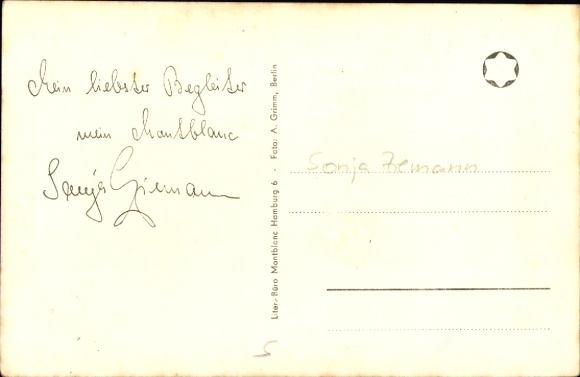 Mein liebster Begleiter
mein Montblanc
Sonja Ziemann
Liter.-Büro Montblanc Hamburg 6 · Foto: A. Grimm, Berlin
Sonja Ziemann
S